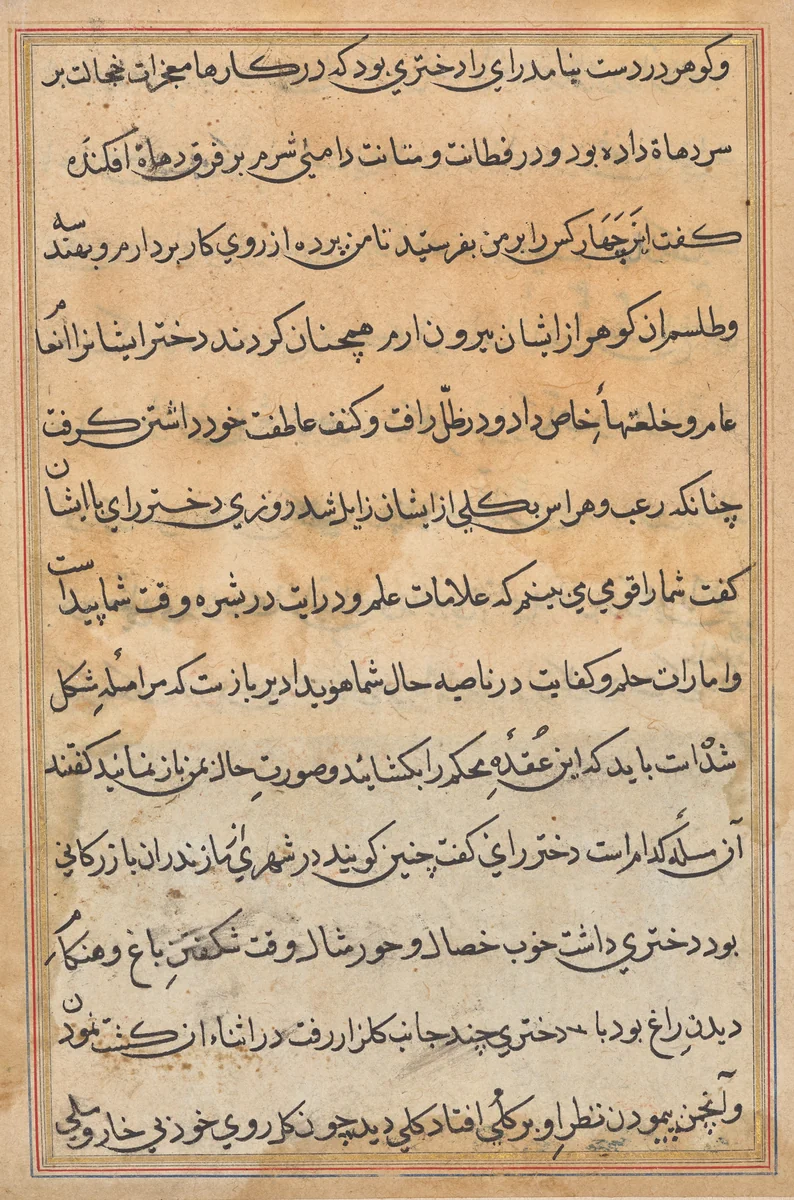 وکوهر در دست نیامد رای را دختری بود که در کارها معجزات خجالت بر
سر دهاة داده بود و در فطانت و متانت دامنی شرم بر فرق دهاة افکنده
کفت این چَهَار کس را بر من بفرستید تا من پرده از روی کار بردارم و بهندسه
وطلسم ان کوهر از ایشان بیرون ارم همچنان کردند دختر ایشانرا انعام
عام و خلعتهاءِ خاص داد و در ظلّ رافت و کنف عاطفت خود داشتن کرفت
چنانکه رعب و هراس بکلی از ایشان زایل شد روزی دختر رای با ایشان
کفت شما را قومی می بینم که علامات علم و درایت در بشره وقت شما پیداست
وامارات حلم و کفایت در ناصیه حال شما هویدا دیر بازست که مرا مسئلهِ مشکل
شدْه است باید که این عُقدهِٔ محکم را بکشائید و صورتِ حال بمن باز نمائید کفتند
آن مسئله کدام است دختر رای کفت چنین کویند در شهری از مازندران بازرکانی
بود دختری داشت خوب خصال و حور مثال وقت شکفتنِ باغ و هنکامِ
دیدنِ راغ بود با دختری چند جانب کلزار رفت در اثناء ان کشت نمودن
و آنچمن پیمودن نظرِ او بر کُلی افتاد کلی دید چون کل روی خود بی خار و